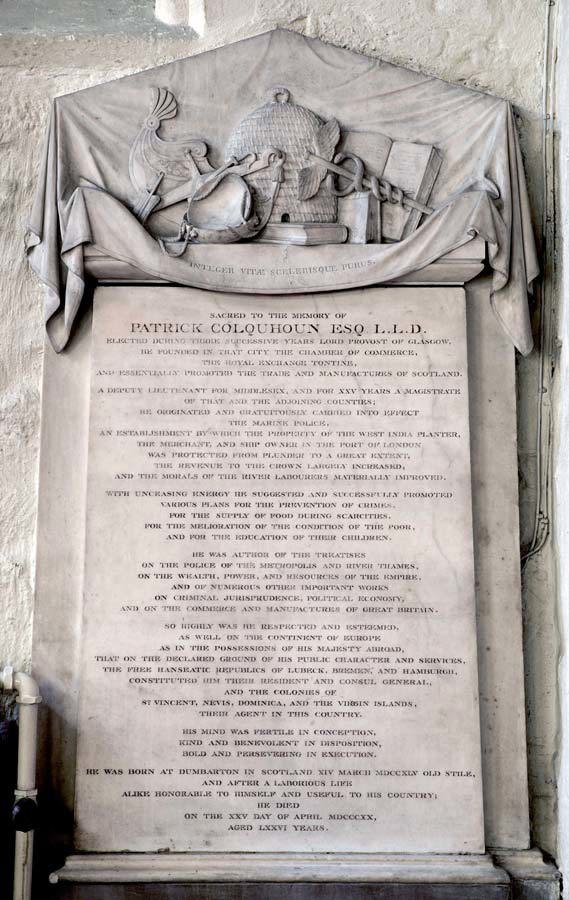 INTEGER VITÆ SCELERISQUE PURUS.
SACRED TO THE MEMORY OF
PATRICK COLQUHOUN ESQ L.L.D.
ELECTED DURING THREE SUCCESSIVE YEARS LORD PROVOST OF GLASGOW,
HE FOUNDED IN THAT CITY THE CHAMBER OF COMMERCE,
THE ROYAL EXCHANGE TONTINE,
AND ESSENTIALLY PROMOTED THE TRADE AND MANUFACTURES OF SCOTLAND.
A DEPUTY LIEUTENANT FOR MIDDLESEX, AND FOR XXV YEARS A MAGISTRATE
OF THAT AND THE ADJOINING COUNTIES;
HE ORIGINATED AND GRATUITOUSLY CARRIED INTO EFFECT
THE MARINE POLICE,
AN ESTABLISHMENT BY WHICH THE PROPERTY OF THE WEST INDIA PLANTER,
THE MERCHANT, AND SHIP OWNER IN THE PORT OF LONDON
WAS PROTECTED FROM PLUNDER TO A GREAT EXTENT,
THE REVENUE TO THE CROWN LARGELY INCREASED,
AND THE MORALS OF THE RIVER LABOURERS MATERIALLY IMPROVED.
WITH UNCEASING ENERGY HE SUGGESTED AND SUCCESSFULLY PROMOTED
VARIOUS PLANS FOR THE PREVENTION OF CRIMES,
FOR THE SUPPLY OF FOOD DURING SCARCITIES,
FOR THE MELIORATION OF THE CONDITION OF THE POOR,
AND FOR THE EDUCATION OF THEIR CHILDREN.
HE WAS AUTHOR OF THE TREATISES
ON THE POLICE OF THE METROPOLIS AND RIVER THAMES,
ON THE WEALTH, POWER, AND RESOURCES OF THE EMPIRE,
AND OF NUMEROUS OTHER IMPORTANT WORKS
ON CRIMINAL JURISPRUDENCE, POLITICAL ECONOMY,
AND ON THE COMMERCE AND MANUFACTURES OF GREAT BRITAIN.
SO HIGHLY WAS HE RESPECTED AND ESTEEMED,
AS WELL ON THE CONTINENT OF EUROPE
AS IN THE POSSESSIONS OF HIS MAJESTY ABROAD,
THAT ON THE DECLARED GROUND OF HIS PUBLIC CHARACTER AND SERVICES,
THE FREE HANSEATIC REPUBLICS OF LUBECK, BREMEN, AND HAMBURGH,
CONSTITUTED HIM THEIR RESIDENT AND CONSUL GENERAL,
AND THE COLONIES OF
ST VINCENT, NEVIS, DOMINICA, AND THE VIRGIN ISLANDS,
THEIR AGENT IN THIS COUNTRY.
HIS MIND WAS FERTILE IN CONCEPTION,
KIND AND BENEVOLENT IN DISPOSITION,
BOLD AND PERSEVERING IN EXECUTION.
HE WAS BORN AT DUMBARTON IN SCOTLAND XIV MARCH MDCCXLV OLD STILE,
AND AFTER A LABORIOUS LIFE
ALIKE HONORABLE TO HIMSELF AND USEFUL TO HIS COUNTRY;
HE DIED
ON THE XXV DAY OF APRIL MDCCCXX,
AGED LXXVI YEARS.